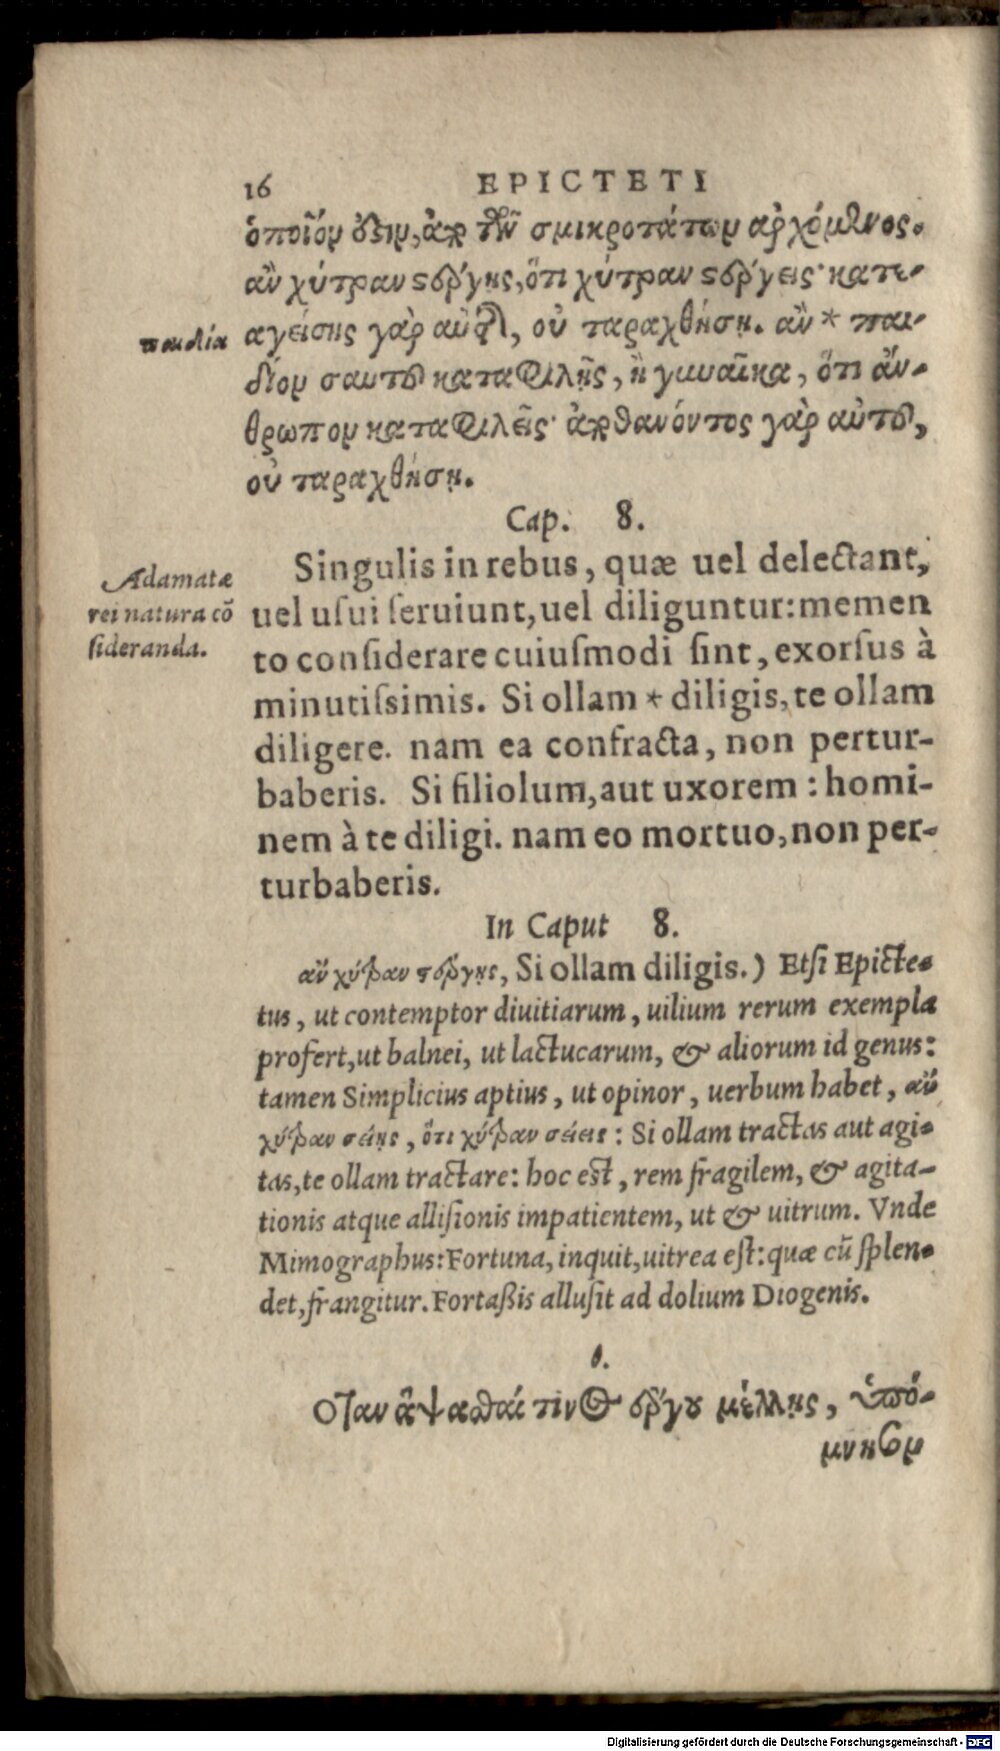 16 EPICTETI
ὁποῖόν ὅδιν, ἀπὸ τῶν σμικροτάτων ἀρχόμενος.
ἂν χύτραν στέργῃς, ὅτι χύτραν στέργεις· κατε-
παιδία
αγείσης γὰρ αὐτῆς, οὐ ταραχθήσῃ. ἂν * παι-
δίον σαυτοῦ καταφιλῇς, ἢ γυναῖκα, ὅτι ἄν-
θρωπον καταφιλεῖς· ἀποθανόντος γὰρ αὐτοῦ,
οὐ ταραχθήσῃ.
Cap. 8.
Adamatæ
rei natura cõ
ſideranda.
Singulis in rebus, quæ uel delectant,
uel uſui ſeruiunt, uel diliguntur: memen
to conſiderare cuiuſmodi ſint, exorſus à
minutiſsimis. Si ollam * diligis, te ollam
diligere. nam ea confracta, non pertur-
baberis. Si filiolum, aut uxorem : homi-
nem à te diligi. nam eo mortuo, non per-
turbaberis.
In Caput 8.
ἂν χύτραν στέργῃς, Si ollam diligis.) Etſi Epicte-
tus, ut contemptor diuitiarum, uilium rerum exempla
profert, ut balnei, ut lactucarum, & aliorum id genus:
tamen Simplicius aptius, ut opinor, uerbum habet, ἂν
χύτραν σείῃς, ὅτι χύτραν σείεις: Si ollam tractas aut agi-
tas, te ollam tractare: hoc est, rem fragilem, & agita-
tionis atque alliſionis impatientem, ut & uitrum. Vnde
Mimographus: Fortuna, inquit, uitrea eſt: quæ cũ ſplen-
det, frangitur. Fortaßis alluſit ad dolium Diogenis.
θ.
Οταν ἅψασθαί τινος ἔργου μέλλῃς, ὑπό-
μνησον
Digitalisierung gefördert durch die Deutsche Forschungsgemeinschaft - DFG